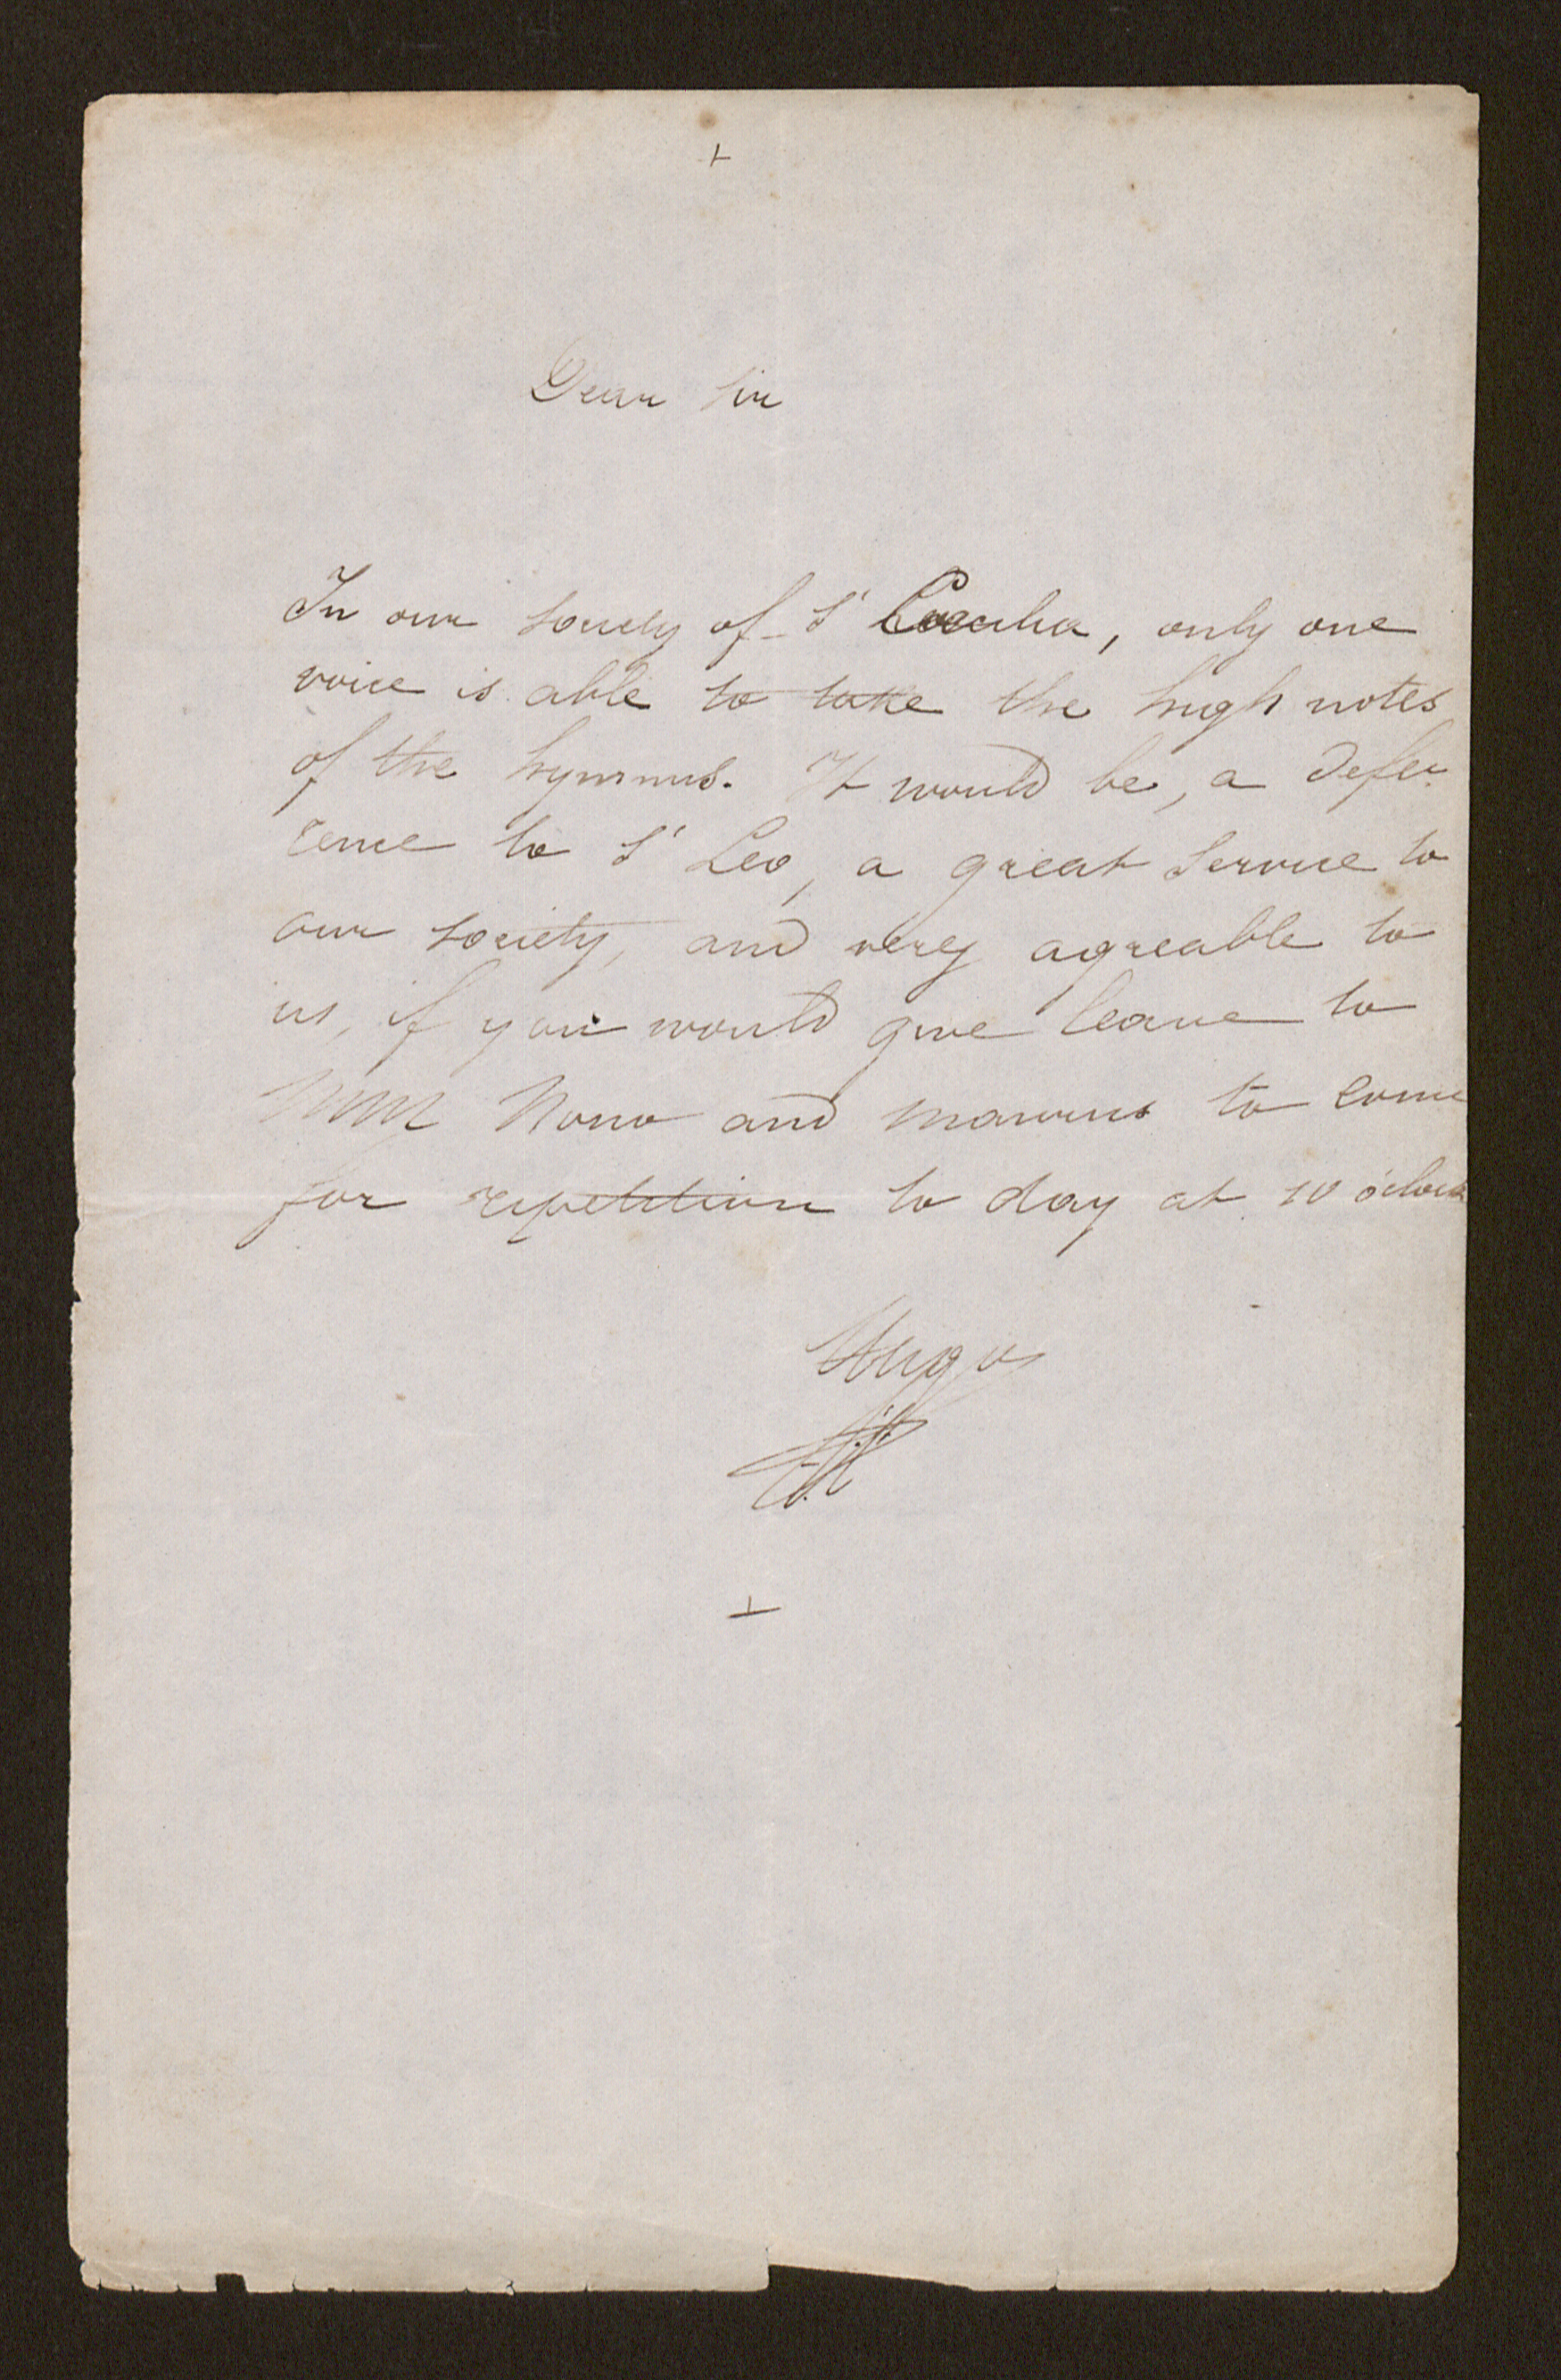 +
Dear Sir
In our society of St Caecilia, only one
voice is able to take the high notes
of the hymnus. It would be, a defe-
rence to St Leo, a great service to
our society, and very agreable to
us, if you would give leave to
Nono and to come
for repetition to day at 10 o'clock
Hugo